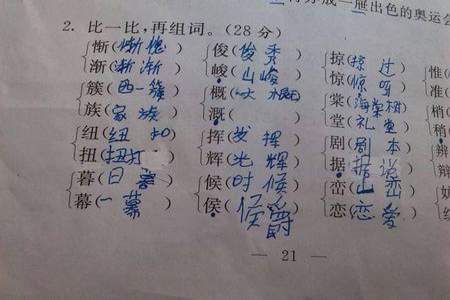 成一届出色的奥运会
2. 比一比,再组词。(28分)
惭(惭愧) 俊(俊秀) 掠(掠过) 惟(
渐(渐渐) 峻(山峻) 惊(惊 ) 准(
簇(西一簇) 概( 概) 棠(海棠树) 梢(
族(家族) 溉( ) 堂(礼堂) 稍(
纽(纽扣) 挥(发挥) 剧(剧本) 辨
扭(扭打) 辉(光辉) 据(据说) 辩
暮(日暮) 候(时候) 峦(山峦)
幕(一幕) 侯(侯爵) 恋(恋爱)
— 21 —